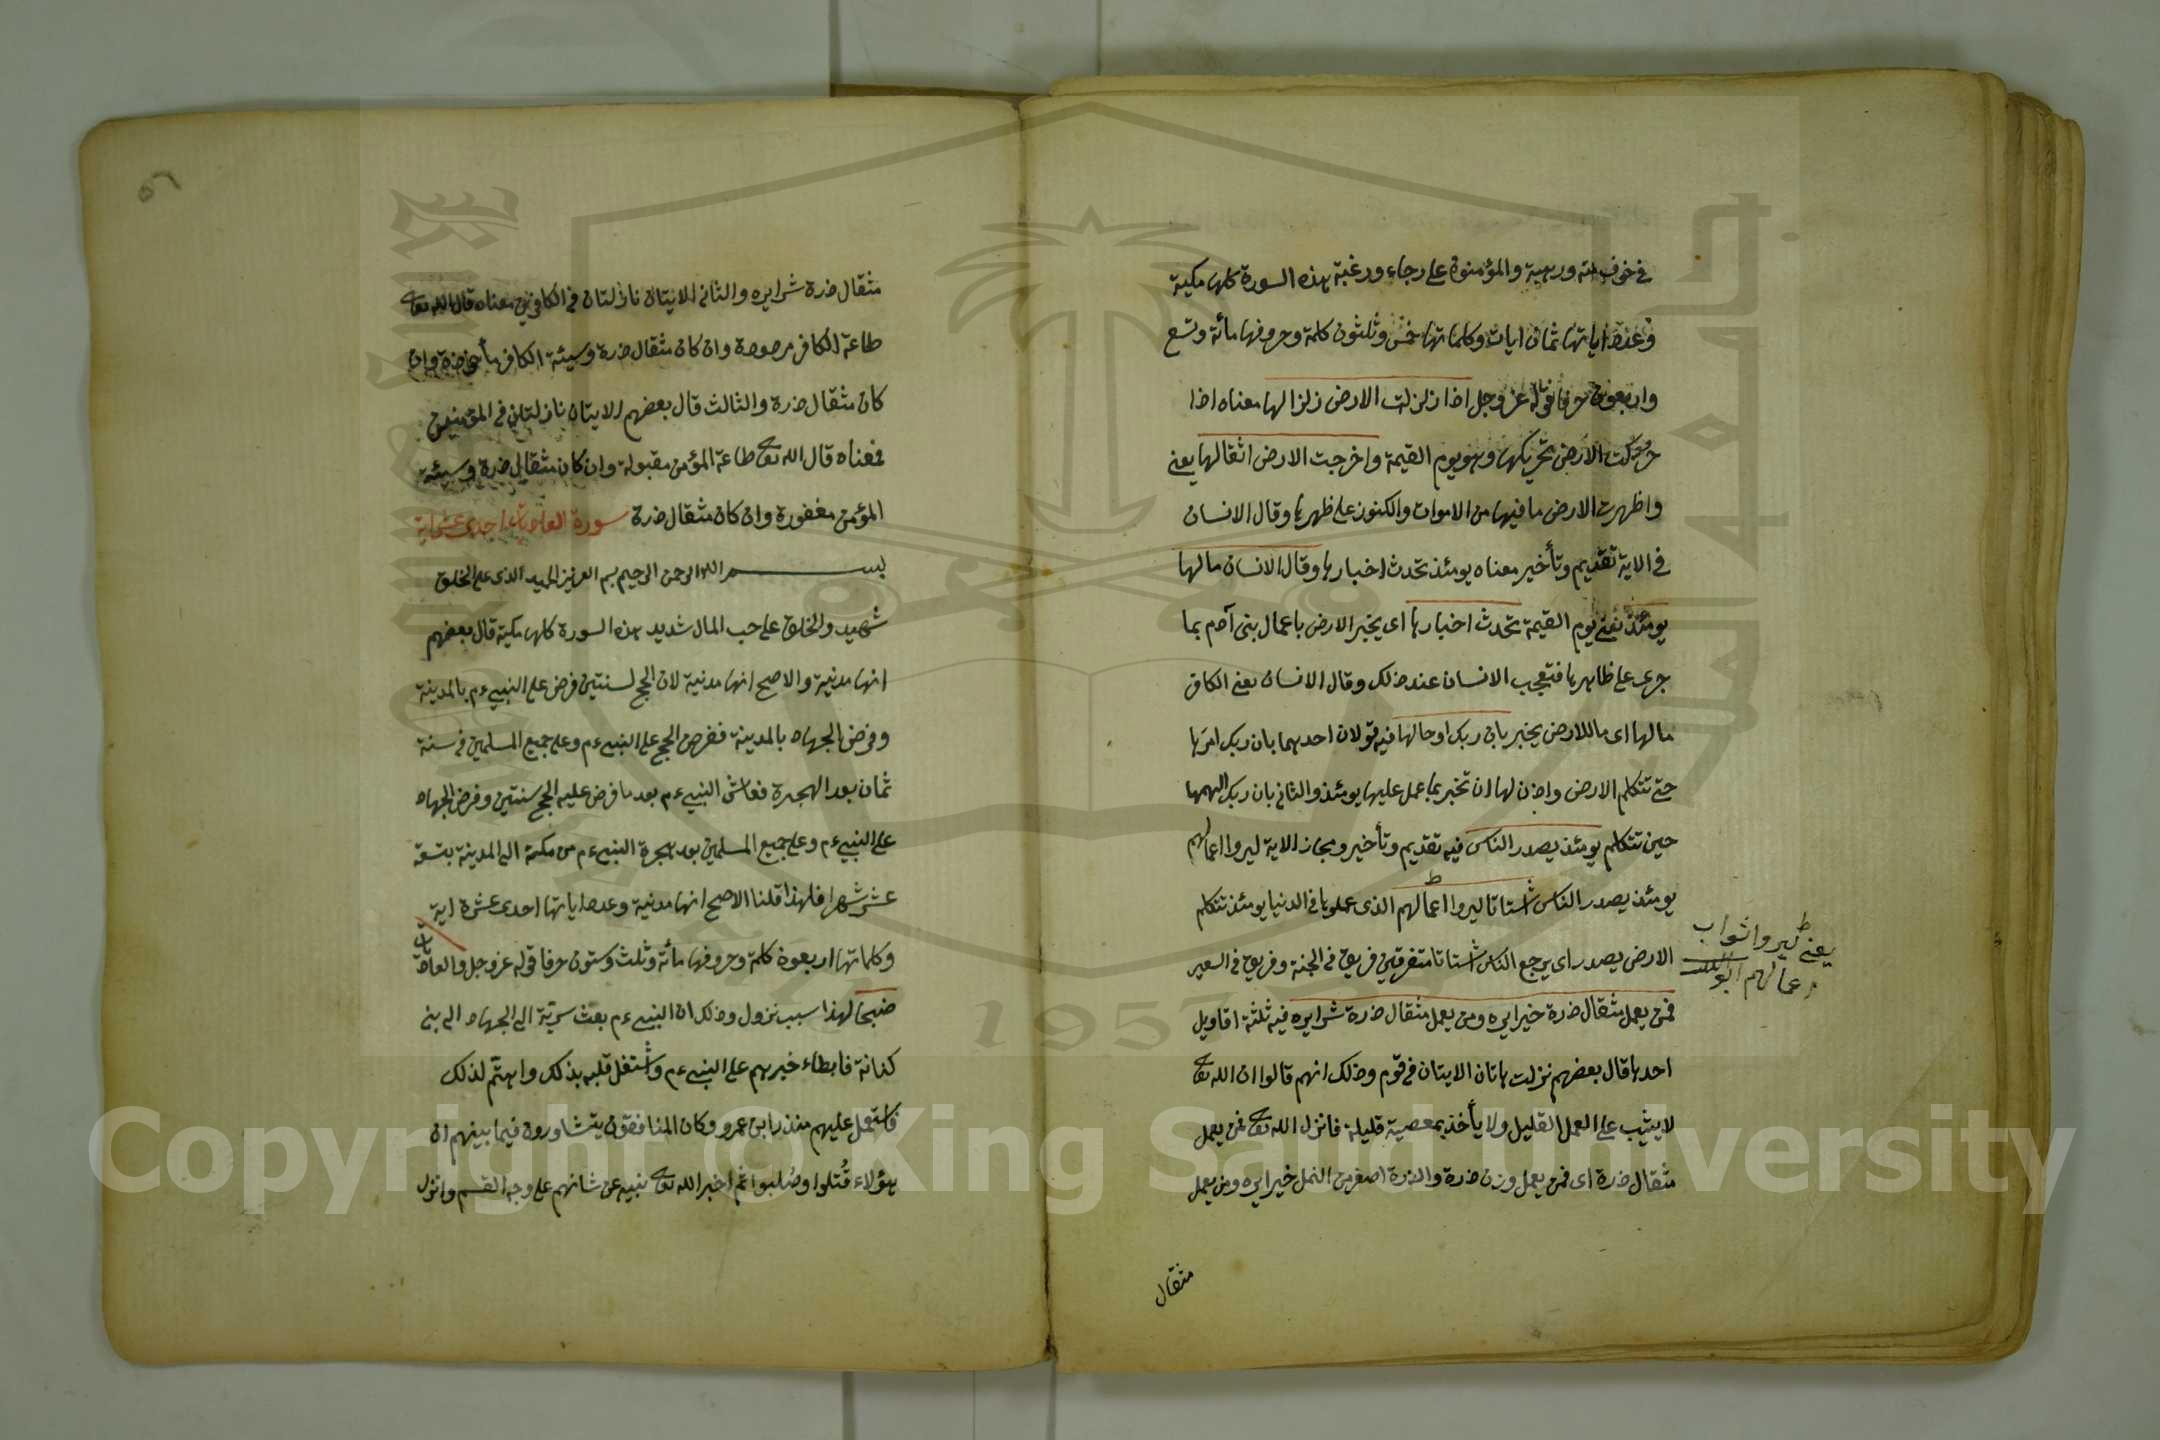 في خوف منه ورهبة والمؤمنون على رجاء ورغبة هذه السورة كلها مكية
وعدد اياتها ثمان ايات وكلماتها خمس وثلثون كلمة وحروفها مائة وتسع
واربعون حرفا قوله عز وجل اذا زلزلت الارض زلزالها معناه اذا
حركت الارض تحريكها وهو يوم القيمة واخرجت الارض اثقالها يعنى
واظهرت الارض ما فيها من الاموات والكنوز على ظهرها وقال الانسان
فى الاية تقديم وتأخير معناه يومئذ تحدث اخبارها وقال الانسان مالها
يومئذ يعنى يوم القيمة تحدث اخبارها اى يخبر الارض باعمال بنى آدم بما
جرى على ظاهرها فتعجب الانسان عند ذلك وقال الانسان يعنى الكافر
مالها اى ما للارض يخبر بان ربك اوحى لها فيه قولان احدهما بان ربك امرها
حتى تتكلم الارض واذن لها ان تخبر بما عمل عليها يومئذ والثانى بان ربك الهمها
حين تتكلم يومئذ يصدر الناس فيه تقديم وتأخير ومجاز الاية ليروا اعمالهم
يومئذ يصدر الناس اشتاتا ليروا اعمالهم الذى عملوها فى الدنيا يومئذ تتكلم
الارض يصدر اى يرجع الناس اشتاتا متفرقين فريق فى الجنة وفريق فى السعير
فمن يعمل مثقال ذرة خيرا يره ومن يعمل مثقال ذرة شرا يره فيه ثلثة اقاويل
احدها قال بعضهم نزلت هاتان الايتان فى قوم وذلك انهم قالوا ان الله تعالى
لا يثيب على العمل القليل ولا يأخذ بمعصية قليلة فانزل الله تعالى فمن يعمل
مثقال ذرة اى فمن يعمل وزن ذرة والذرة اصغر من النمل خيرا يره ومن يعمل
مثقال
يعنى ليروا ثواب
اعمالهم
مثقال ذرة شرا يره والثانى الايتان نازلتان فى الكافرين معناه قال الله تعالى
طاعة الكافر مرصوصة وان كان مثقال ذرة وسيئة الكافر مأخوذة وان
كان مثقال ذرة والثالث قال بعضهم الايتان نازلتان فى المؤمنين
فمعناه قال الله تعالى طاعة المؤمن مقبولة وان كان مثقال ذرة وسيئة
المؤمن مغفورة وان كان مثقال ذرة سورة العاديات احدى عشر اية
بسم الله الرحمن الرحيم بسم العزيز المجيد الذى على الخلق
شهيد والخلق على حب المال شديد هذه السورة كلها مكية قال بعضهم
انها مدنية والاصح انها مدنية لان الحج لسنتين فرض على النبى ءم بالمدينة
وفرض الجهاد بالمدينة ففرض الحج على النبى ءم وعلى جميع المسلمين فى سنة
ثمان بعد الهجرة فعاش النبى ءم بعد ما فرض عليه الحج سنتين وفرض الجهاد
على النبى ءم وعلى جميع المسلمين بعد هجرة النبى ءم من مكة الى المدينة بتسعة
عشر شهرا فلهذا قلنا الاصح انها مدنية وعدد اياتها احدى عشرة اية
وكلماتها اربعون كلمة وحروفها مائة وثلث وستون حرفا قوله عز وجل والعاديات
ضبحا لهذا سبب نزول وذلك ان النبى ءم بعث سرية الى الجهاد الى بنى
كنانة فابطاء خبرهم على النبى ءم واشتغل قلبه بذلك واهتم لذلك
فاستعمل عليهم منذر ابن عمرو وكان المنافقون يتشاورون فيما بينهم ان
هؤلاء قُتلوا وصُلبوا ثم اخبر الله تعالى نبيه عن شانهم على وجه القسم وانزل
Copyright © King Saud University
1957